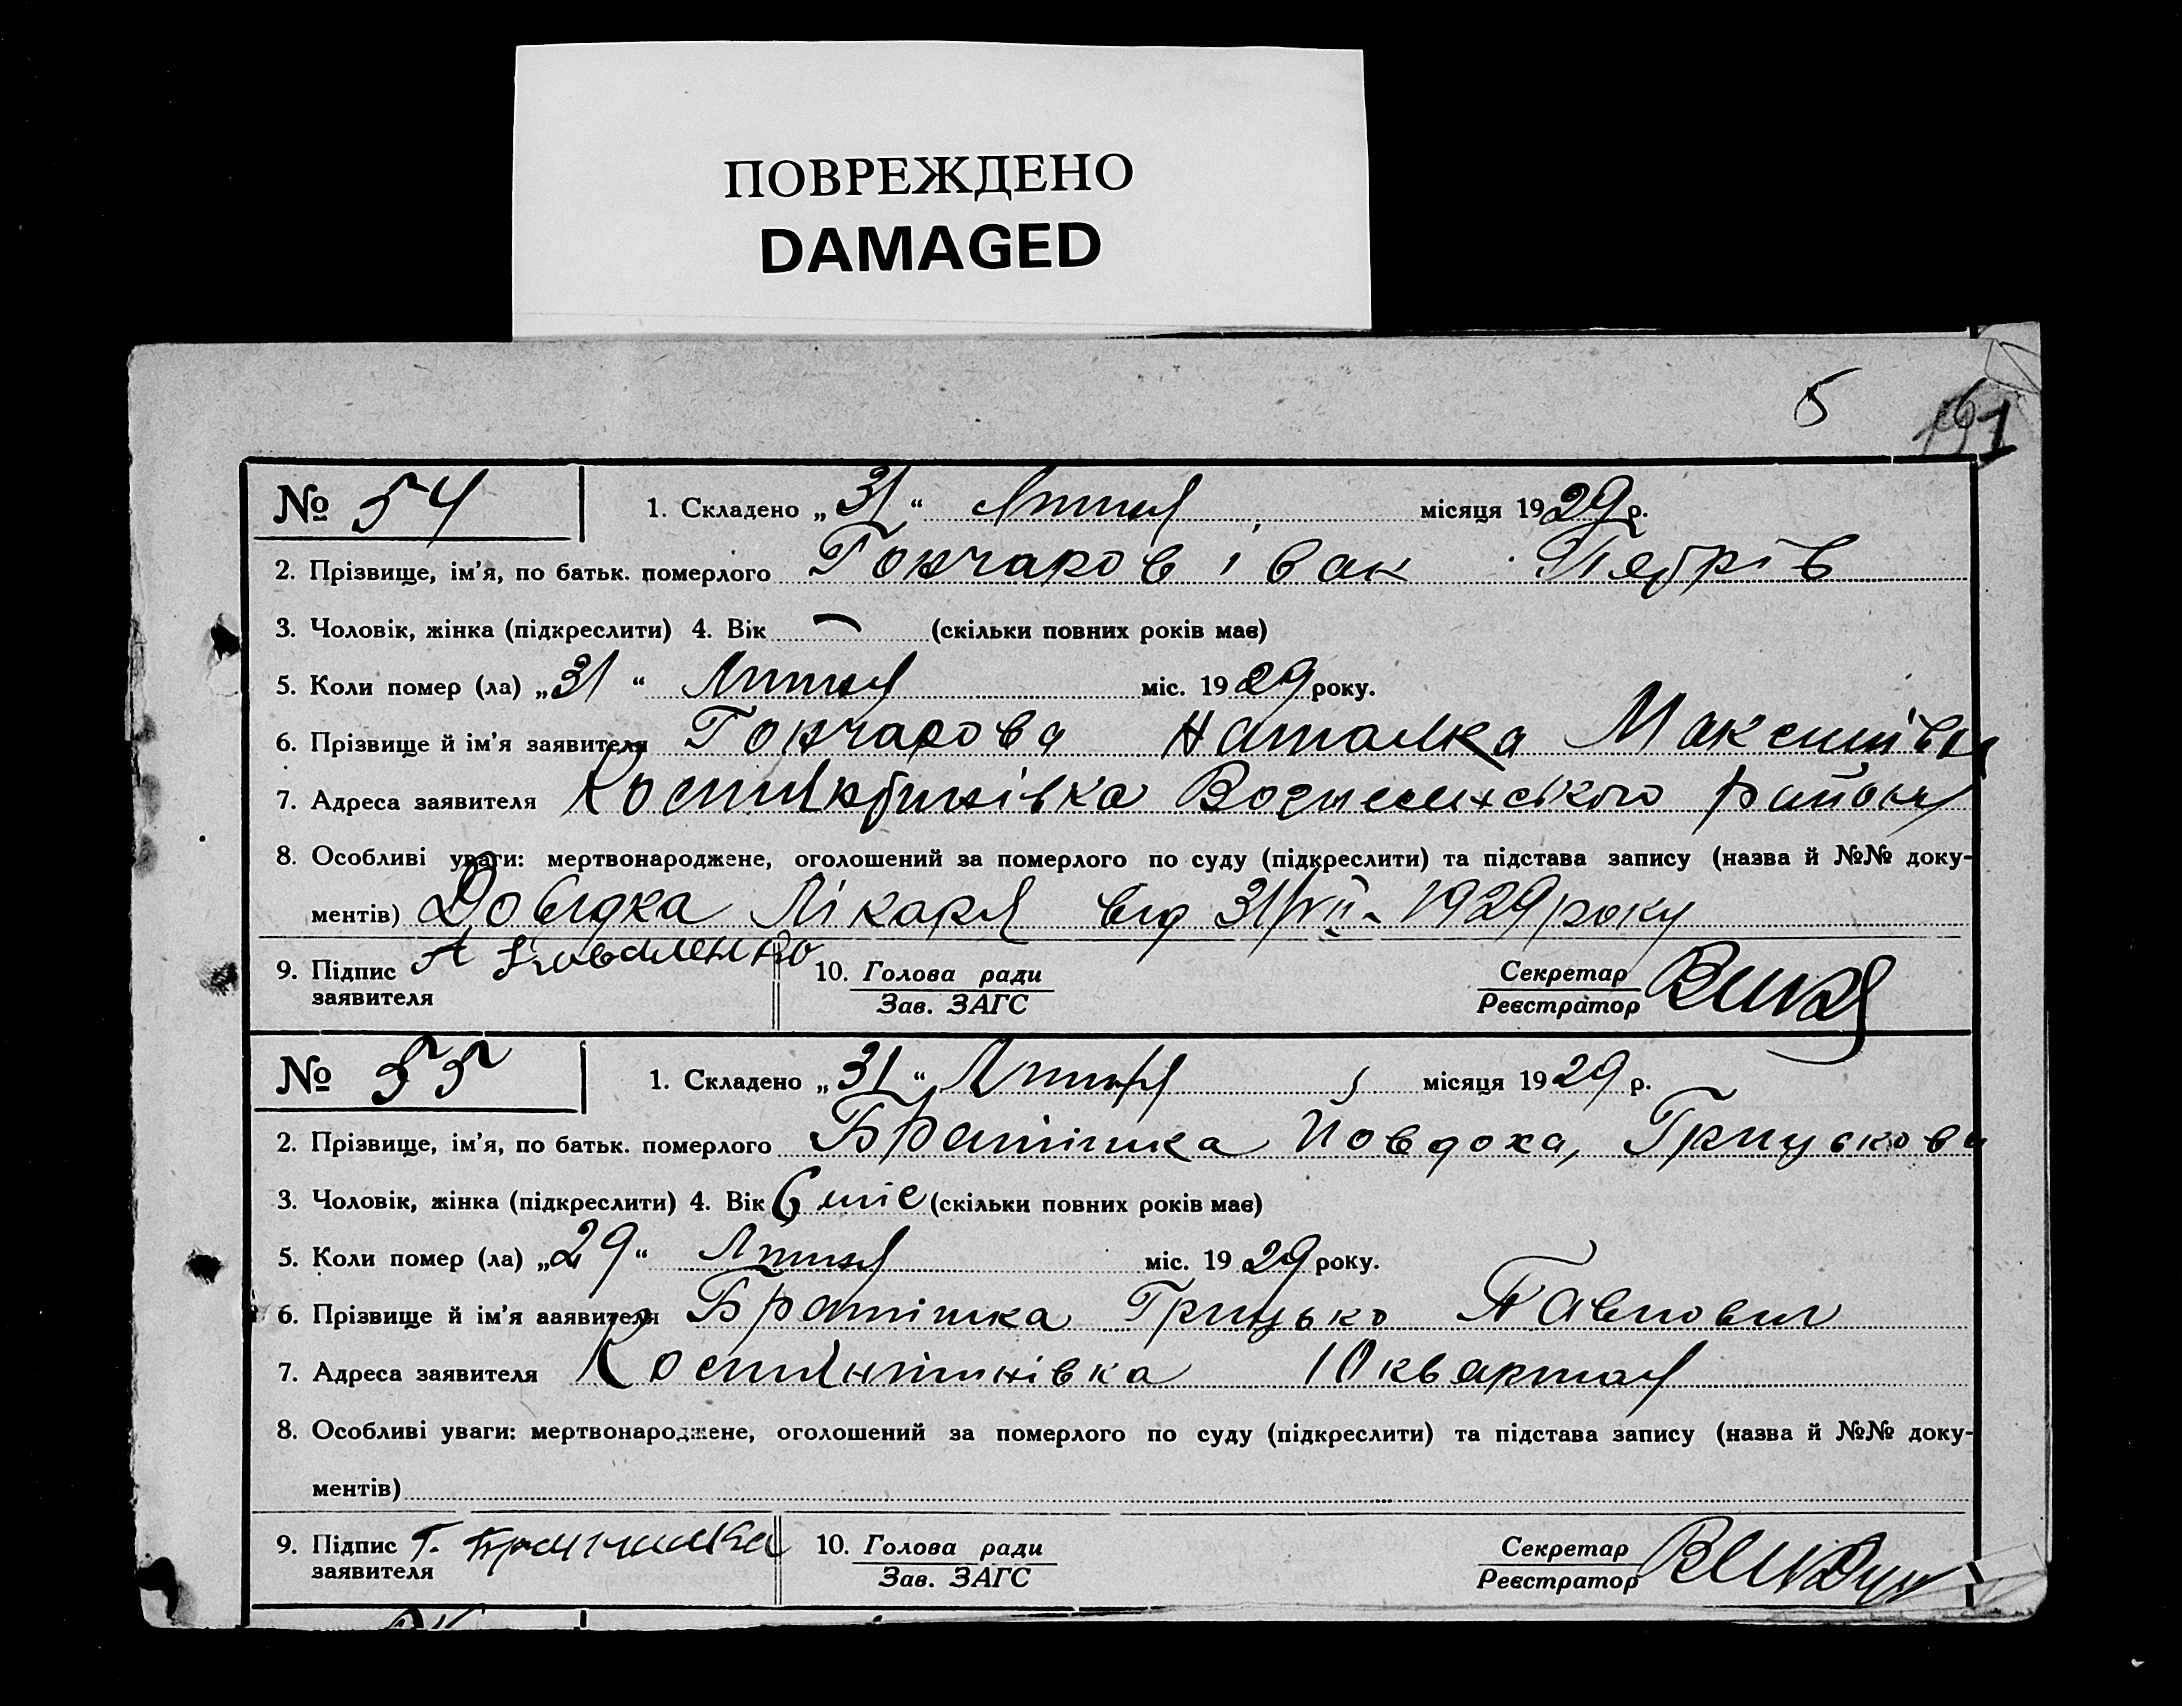 ПОВРЕЖДЕНО
DAMAGED
5
191
№ 54 1. Складено „31“ Липня місяця 1929 р.
2. Прізвище, ім’я, по батьк. померлого Гончаров Іван Петрів
3. Чоловік, жінка (підкреслити) 4. Вік — (скільки повних років має)
5. Коли помер (ла) „31“ Липня міс. 1929 року.
6. Прізвище й ім’я заявителя Гончарова Наталка Максимівна
7. Адреса заявителя Костянтинівка Вознесенського району
8. Особливі уваги: мертвонароджене, оголошений за померлого по суду (підкреслити) та підстава запису (назва й №№ доку-
ментів) Довідка Лікаря від 31/VII - 1929 року
9. Підпис А Коваленко 10. Голова ради Секретар
заявителя Зав. ЗАГС Реєстратор
№ 55 1. Складено „31“ Липня місяця 1929 р.
2. Прізвище, ім’я, по батьк. померлого Братішка Йовдоха, Грицькова
3. Чоловік, жінка (підкреслити) 4. Вік 6 міс (скільки повних років має)
5. Коли помер (ла) „29“ Липня міс. 1929 року.
6. Прізвище й ім’я заявителя Братішка Грицько Павлович
7. Адреса заявителя Костянтинівка 10 квартал
8. Особливі уваги: мертвонароджене, оголошений за померлого по суду (підкреслити) та підстава запису (назва й №№ доку-
ментів)
9. Підпис Г. Братішка 10. Голова ради Секретар
заявителя Зав. ЗАГС Реєстратор